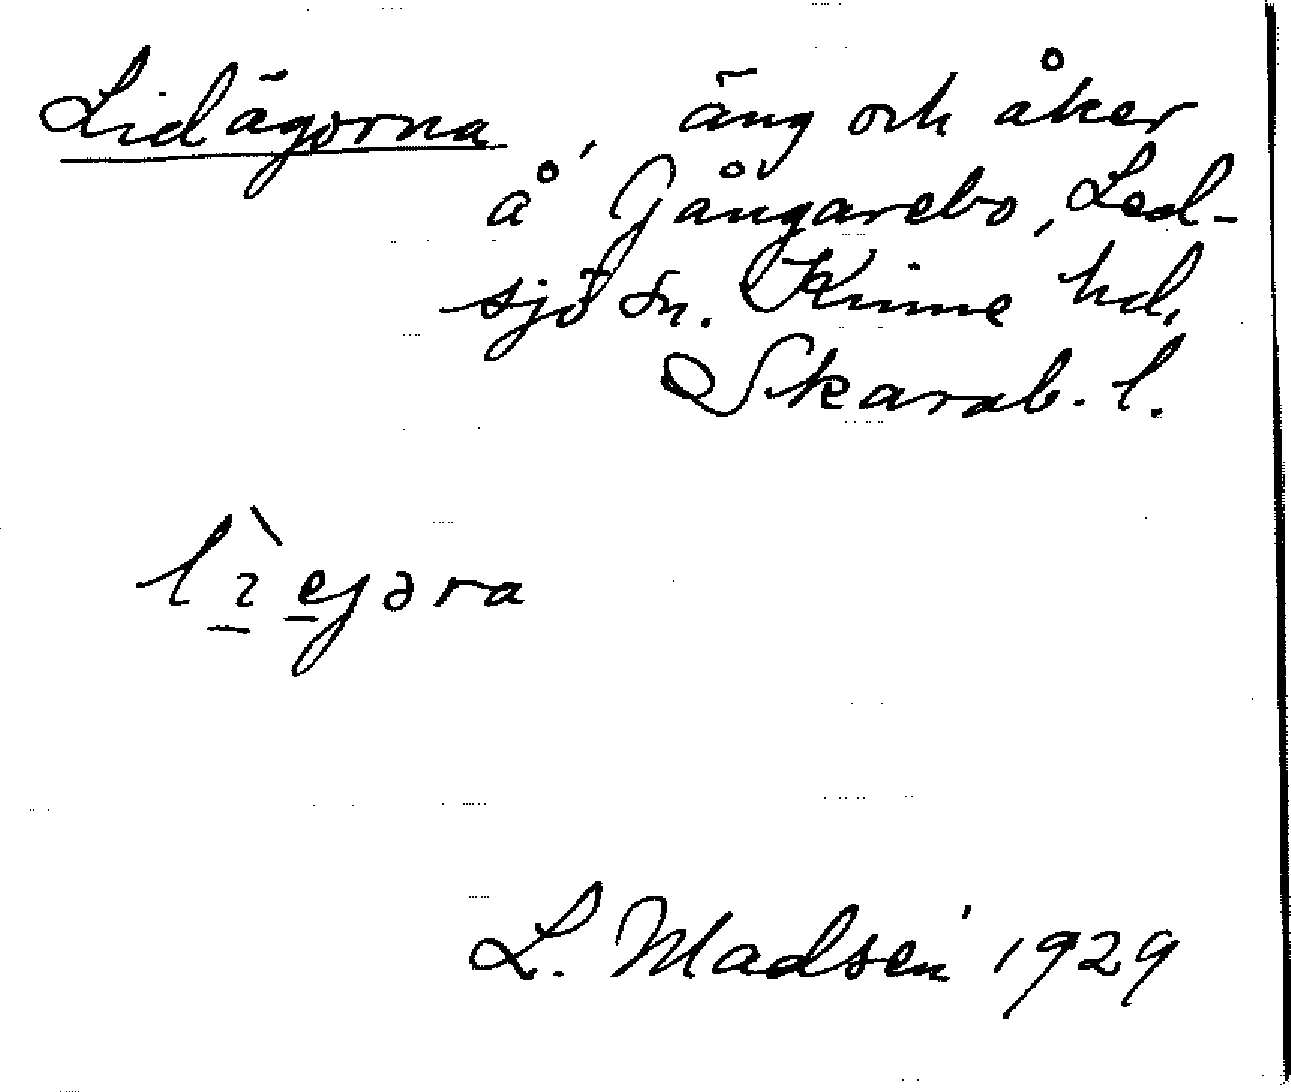 Lidägorna, äng och åker
å Gångarebo, Led-
sjö sn. Kinne hd,
Skarab. l.
lìegəra
L. Madsén 1929